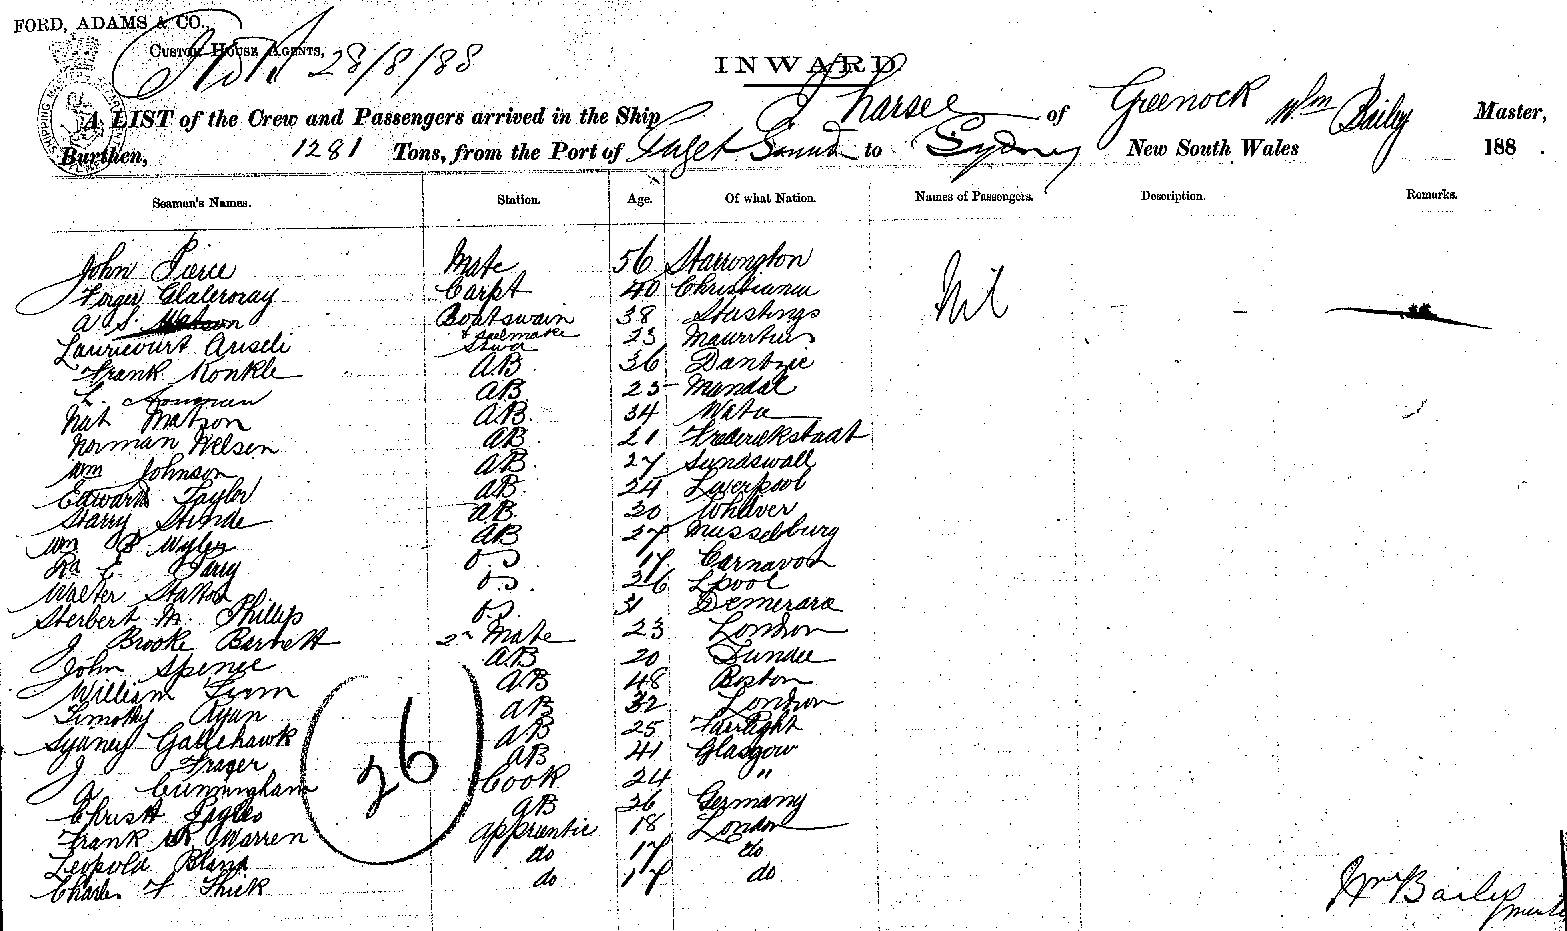 FORD, ADAMS & CO.,
CUSTOM HOUSE AGENTS,
28/8/88
INWARD
A LIST of the Crew and Passengers arrived in the Ship Tharsee of Greenock Wm Bailey Master,
Burthen, 1281 Tons, from the Port of Puget Sound to Sydney New South Wales 188 .
Seamen's Names. Station. Age. Of what Nation. Names of Passengers. Description. Remarks.
John Pierce Mate 56 Harrington Nil - -
Carpt 40 Christiania
A S. Watson Boatswain 38 Hastings
& Sailmake
23 Mauritius
Frank Konkle AB 36 Dantzic
L. AB 25 Mandal
Nat Matson AB. 34
Norman Nelson AB 21 Frederickstadt
Wm Johnson AB. 27 Sundswall
Edward Taylor AB. 24 Liverpool
Harry Hinde AB. 20
Wm B Wyler AB 27 Musselburg
Parry OS 17 Carnavon
Walter OS. 26 Lpool
Herbert M. Phillip OS. 31 Demerara
J Brooke Barnett 2n Mate 23 London
John Spence AB 20 Dundee
William AB 48 Boston
Timothy Ryan AB 32 London
Sydney Gallehawk AB 25 Fairlight
J Frazer AB 41 Glasgow
A Cunningham Cook 24 "
AB 26 Germany
Frank Warren apprentice 18 London
Leopold Bland do 17 do
Charles F Thick do 17 do
26
Wm Bailey